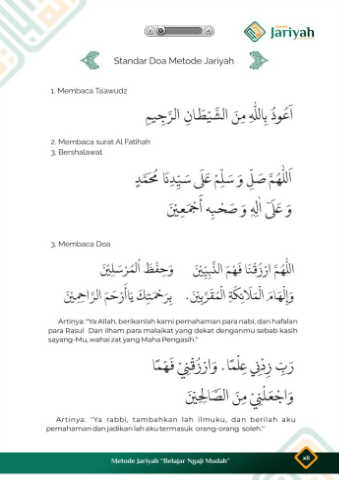 Jariyah
Standar Doa Metode Jariyah
1. Membaca Ta'awudz
اَعُوذُ بِاللّٰهِ مِنَ الشَّيْطَانِ الرَّجِيمِ
2. Membaca surat Al Fatihah
3. Bershalawat
اَللّٰهُمَّ صَلِّ وَ سَلِّمْ عَلَى سَيِّدِنَا مُحَمَّدٍ
وَ عَلَىٰ اٰلِهِ وَ صَحْبِهِ أَجْمَعِيْنَ
3. Membaca Doa
اللّٰهُمَّ ارْزُقْنَا فَهْمَ النَّبِيِّيْنَ وَحِفْظَ الْمُرْسَلِيْنَ
وَإِلْهَامَ الْمَلَائِكَةِ الْمُقَرَّبِيْنَ . بِرَحْمَتِكَ يَا أَرْحَمَ الرَّاحِمِيْنَ
Artinya: "Ya Allah, berikanlah kami pemahaman para nabi, dan hafalan
para Rasul Dan ilham para malaikat yang dekat denganmu sebab kasih
sayang-Mu, wahai zat yang Maha Pengasih."
رَبِّ زِدْنِي عِلْمًا . وَارْزُقْنِيْ فَهْمًا
وَاجْعَلْنِيْ مِنَ الصَّالِحِيْنَ
Artinya: "Ya rabbi, tambahkan lah ilmuku, dan berilah aku
pemahaman dan jadikan lah aku termasuk orang-orang soleh."
Metode Jariyah "Belajar Ngaji Mudah"
xii